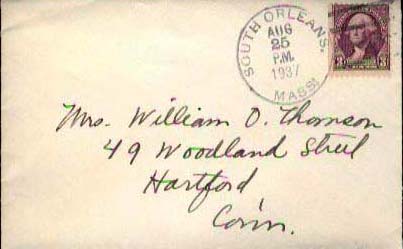 SOUTH ORLEANS.
AUG
25
P.M.
1937
MASS.
3 3
Mrs. William O. Thomson
49 Woodland Street
Hartford
Conn.